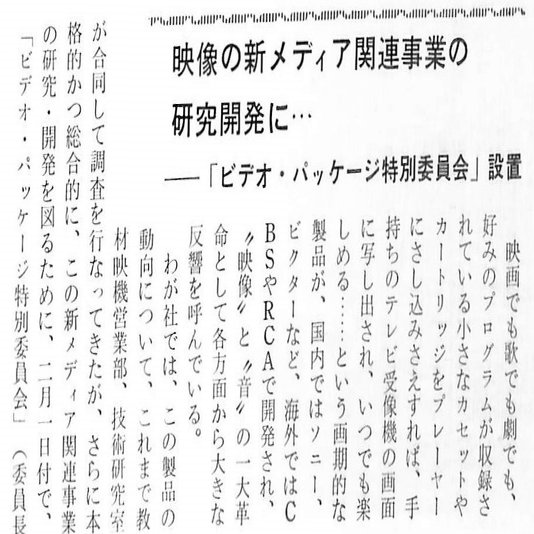 映像の新メディア関連事業の
研究開発に…
――「ビデオ・パッケージ特別委員会」設置
映画でも歌でも劇でも、
好みのプログラムが収録さ
れている小さなカセットや
カートリッジをプレーヤー
にさし込みさえすれば、手
持ちのテレビ受像機の画面
に写し出され、いつでも楽
しめる……という画期的な
製品が、国内ではソニー、
ビクターなど、海外ではC
BSやRCAで開発され、
〝映像〟と〝音〟の一大革
命として各方面から大きな
反響を呼んでいる。
わが社では、この製品の
動向について、これまで教
材映機営業部、技術研究室
が合同して調査を行なってきたが、さらに本
格的かつ総合的に、この新メディア関連事業
の研究・開発を図るために、二月一日付で、
「ビデオ・パッケージ特別委員会」（委員長